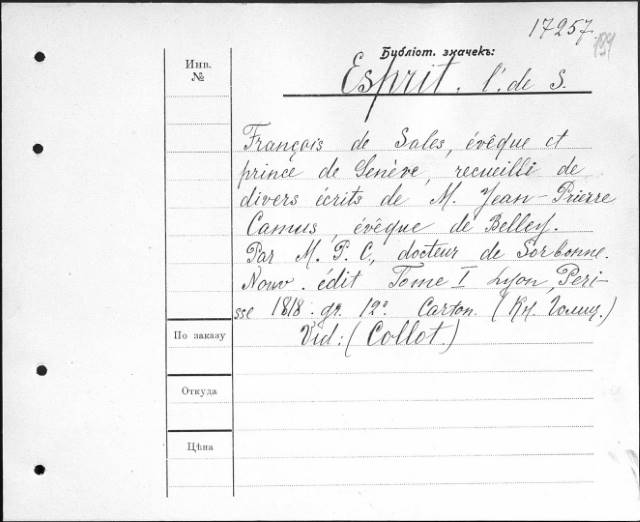 17257.
199
Библіот. значекъ:
Инв.
№
Esprit. l'. de S.
François de Sales, évêque et
prince de Genève, recueilli de
divers écrits de M. Jean-Pierre
Camus, évêque de Belley.
Par M. P. C., docteur de Sorbonne.
Nouv. édit Tome I Lyon, Peri-
sse 1818. gr. 12º Carton. (Кн. Голиц.)
По заказу
Vid: (Collot.)
Откуда
Цѣна